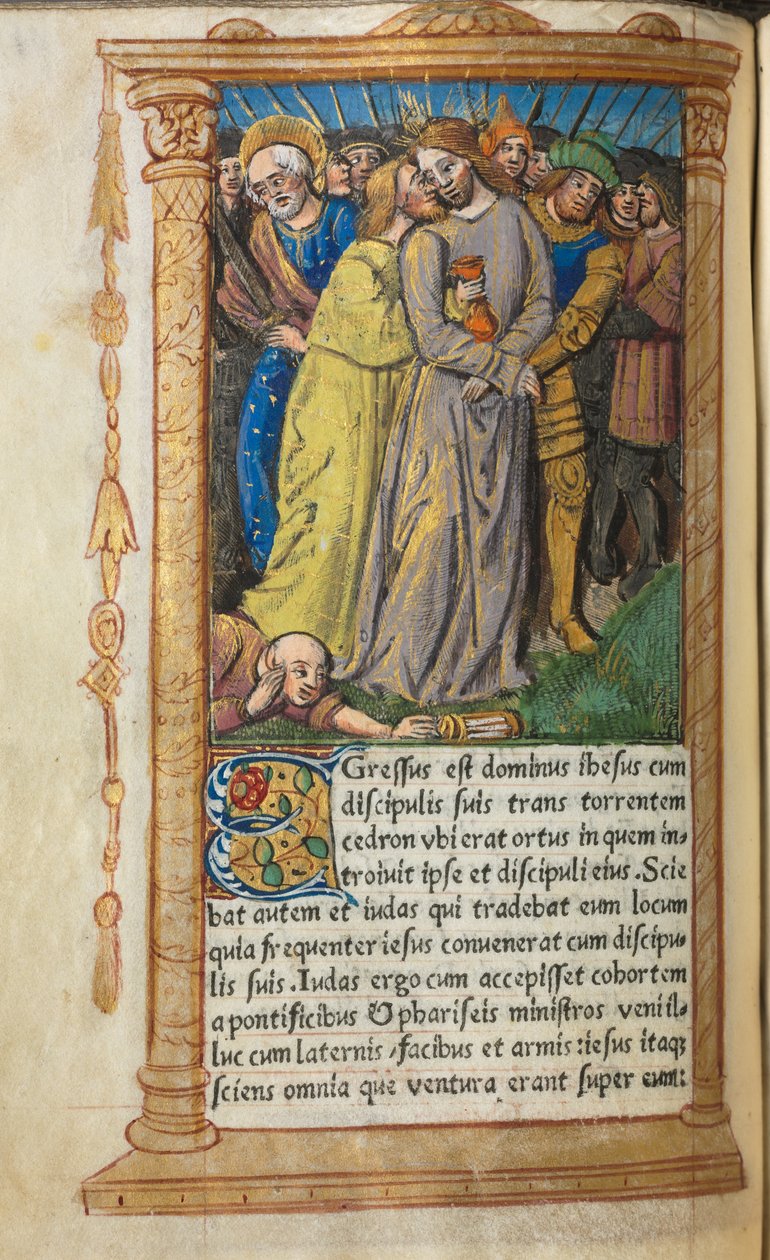 EGressus est dominus ihesus cum
discipulis suis trans torrentem
cedron vbi erat ortus in quem in-
troiuit ipse et discipuli eius. Scie
bat autem et iudas qui tradebat eum locum
quia frequenter iesus conuenerat cum discipu-
lis suis. Iudas ergo cum accepisset cohortem
a pontificibus & phariseis ministros venit il-
luc cum laternis, facibus et armis: iesus itaqꝫ
sciens omnia que ventura erant super eum: